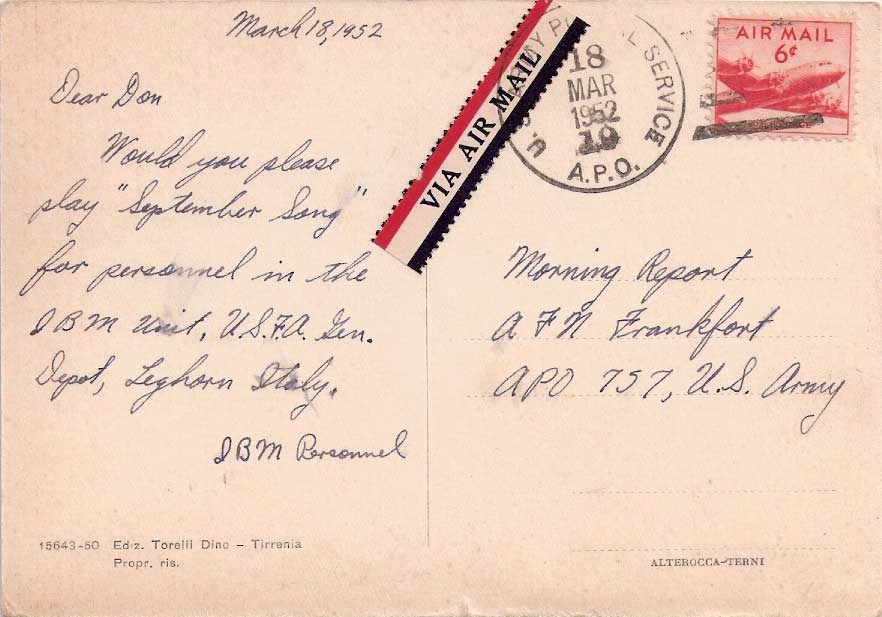 March 18, 1952
Dear Don
Would you please
play "September Song"
for personnel in the
IBM Unit, U.S.F.A. Gen.
Depot, Leghorn Italy.
IBM Personnel
15643-50 Ediz. Torelli Dino – Tirrenia
Propr. ris.
VIA AIR MAIL
U.S. ARMY POSTAL SERVICE
18
MAR
1952
A.P.O.
AIR MAIL
6¢
Morning Report
AFN Frankfort
APO 757, U.S. Army
ALTEROCCA-TERNI